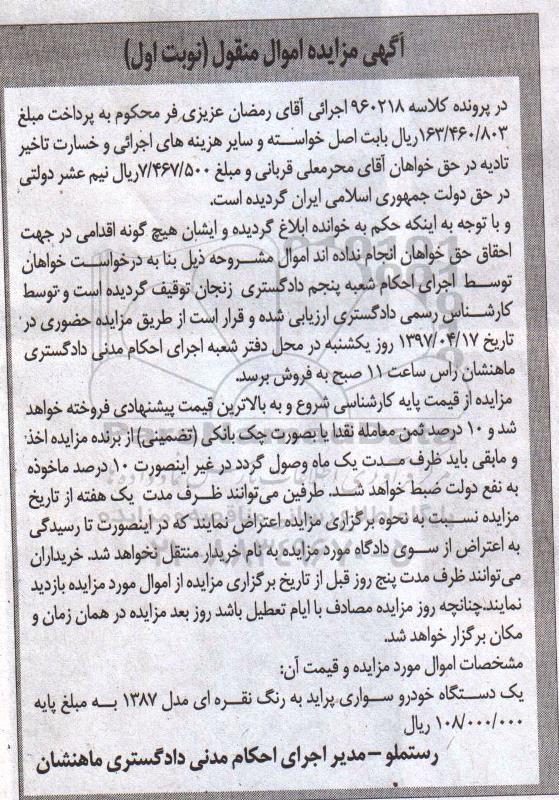 آگهی مزایده اموال منقول (نوبت اول)
در پرونده کلاسه ۹۶۰۲۱۸ اجرائی آقای رمضان عزیزی فر محکوم به پرداخت مبلغ
۱۶۳/۴۶۰/۸۰۳ریال بابت اصل خواسته و سایر هزینه های اجرائی و خسارت تاخیر
تادیه در حق خواهان آقای محرمعلی قربانی و مبلغ ۷/۴۶۷/۵۰۰ریال نیم عشر دولتی
در حق دولت جمهوری اسلامی ایران گردیده است.
و با توجه به اینکه حکم به خوانده ابلاغ گردیده و ایشان هیچ گونه اقدامی در جهت
احقاق حق خواهان انجام نداده اند اموال مشروحه ذیل بنا به درخواست خواهان
توسط اجرای احکام شعبه پنجم دادگستری زنجان توقیف گردیده است و توسط
کارشناس رسمی دادگستری ارزیابی شده و قرار است از طریق مزایده حضوری در
تاریخ ۱۳۹۷/۰۴/۱۷ روز یکشنبه در محل دفتر شعبه اجرای احکام مدنی دادگستری
ماهنشان راس ساعت ۱۱ صبح به فروش برسد.
مزایده از قیمت پایه کارشناسی شروع و به بالاترین قیمت پیشنهادی فروخته خواهد
شد و ۱۰ درصد ثمن معامله نقدا یا بصورت چک بانکی (تضمینی) از برنده مزایده اخذ
و مابقی باید ظرف مدت یک ماه وصول گردد در غیر اینصورت ۱۰ درصد ماخوذه
به نفع دولت ضبط خواهد شد. طرفین می‌توانند ظرف مدت یک هفته از تاریخ
مزایده نسبت به نحوه برگزاری مزایده اعتراض نمایند که در اینصورت تا رسیدگی
به اعتراض از سوی دادگاه مورد مزایده به نام خریدار منتقل نخواهد شد. خریداران
می‌توانند ظرف مدت پنج روز قبل از تاریخ برگزاری مزایده از اموال مورد مزایده بازدید
نمایند.چنانچه روز مزایده مصادف با ایام تعطیل باشد روز بعد مزایده در همان زمان و
مکان برگزار خواهد شد.
مشخصات اموال مورد مزایده و قیمت آن:
یک دستگاه خودرو سواری پراید به رنگ نقره ای مدل ۱۳۸۷ به مبلغ پایه
۱۰۸/۰۰۰/۰۰۰ ریال
رستملو – مدیر اجرای احکام مدنی دادگستری ماهنشان